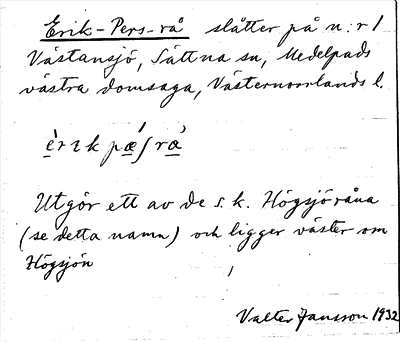 Erik-Pers-rå slåtter på n:r 1
Västansjö, Sättna sn, Medelpads
västra domsaga, Västernorrlands l.
èrɪk pæ̲ʹʃ ræ̲̀
Utgör ett av de s.k. Högsjöråna
(se detta namn) och ligger väster om
Högsjön
Valter Jansson 1932